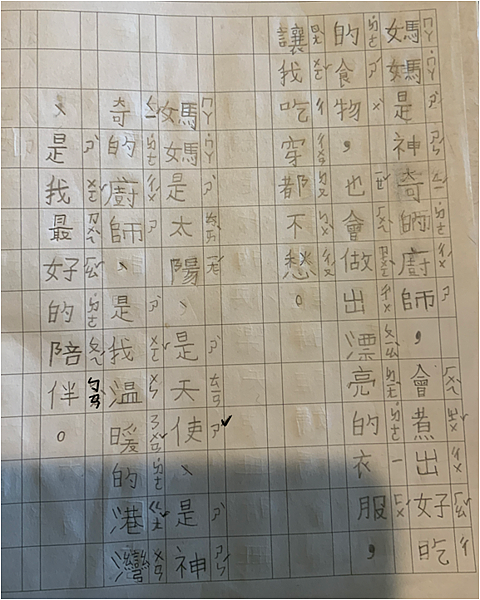 媽媽是神奇的廚師，會煮出好吃
的食物，也會做出漂亮的衣服，
讓我吃穿都不愁。
媽媽是太陽、是天使、是神
奇的廚師、是我溫暖的港灣
、是我最好的陪伴。